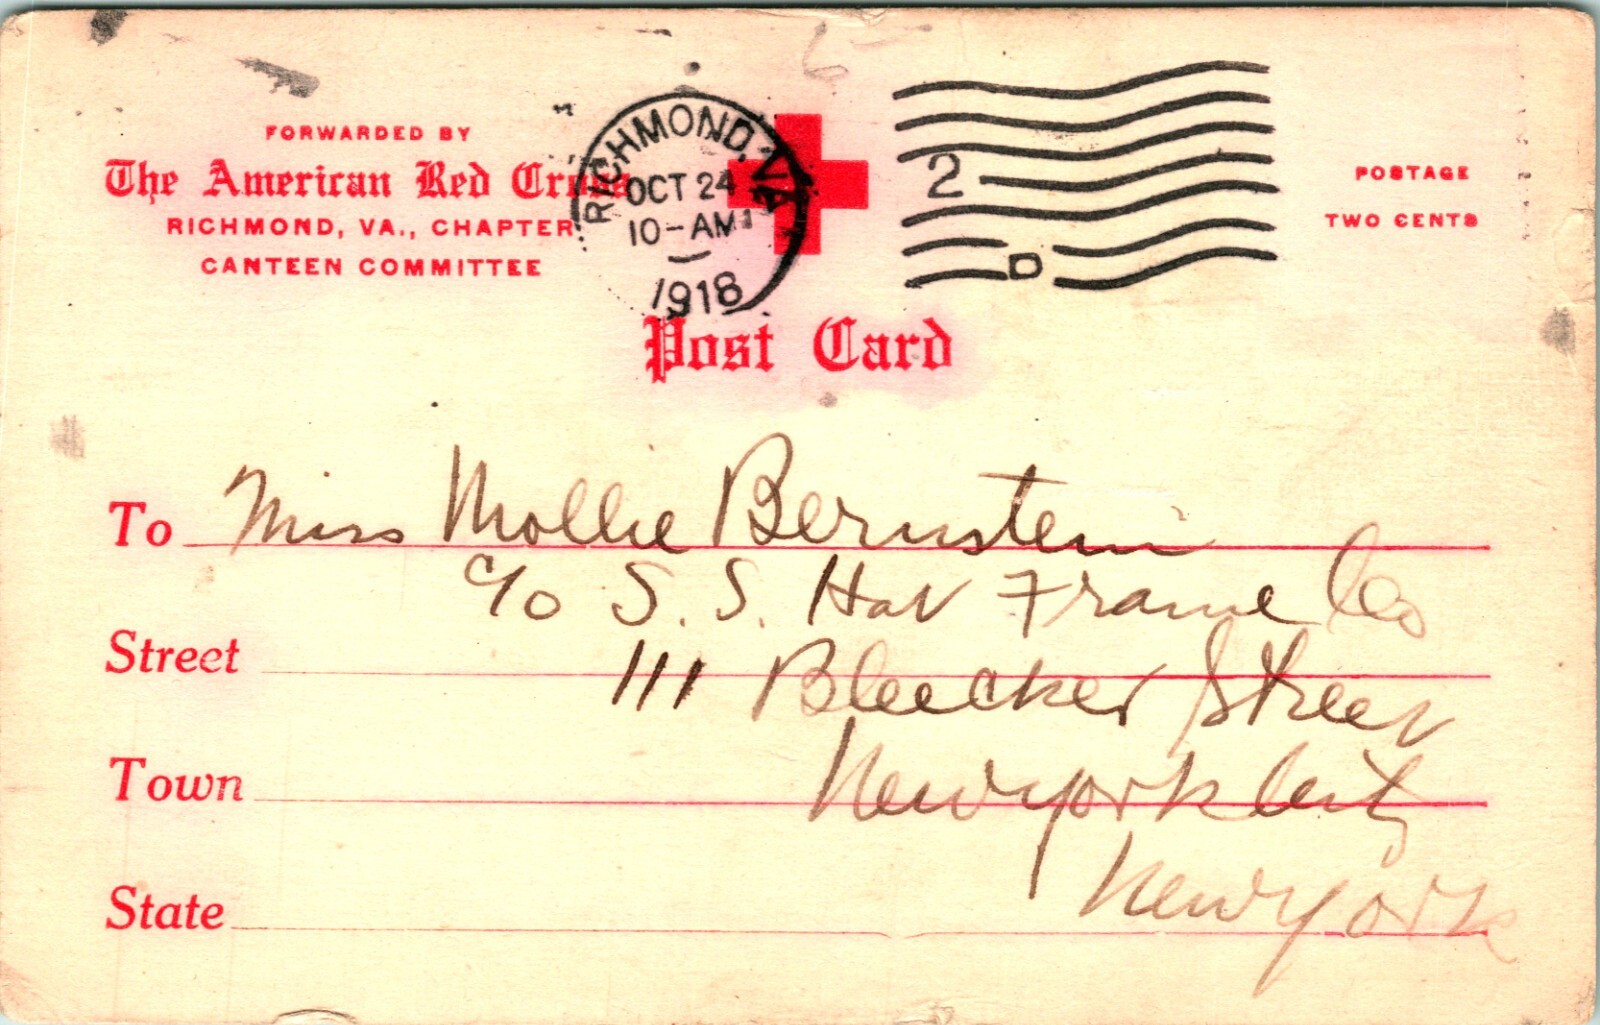 FORWARDED BY
The American Red Cross
RICHMOND, VA., CHAPTER
CANTEEN COMMITTEE
RICHMOND, VA.
OCT 24
10-AM
1918
2
D
POSTAGE
TWO CENTS
Post Card
To Miss Mollie Bernstein
c/o S. S. Hat Frame Co
Street 111 Bleecker Street
Town New York City
State New York